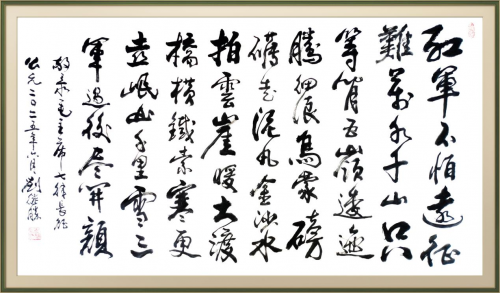 紅軍不怕遠征
難萬水千山只
等閒五嶺逶迤
騰細浪烏蒙磅
礴走泥丸金沙水
拍雲崖暖大渡
橋橫鐵索寒更
喜岷山千里雪三
軍過後盡開顏
敬录毛主席七律長征
公元二〇二五年六月劉